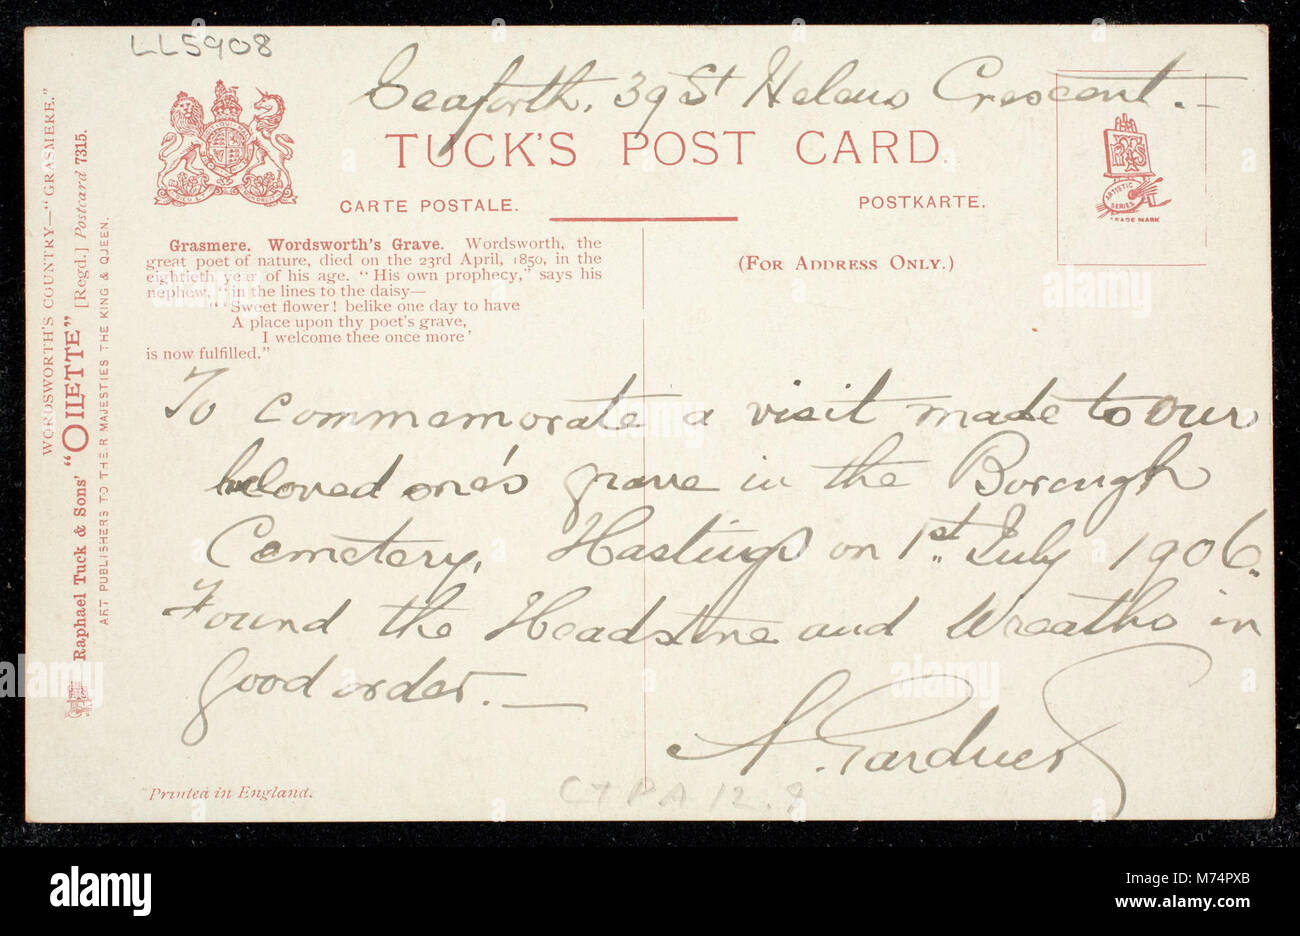 LL5908
Seaforth. 39 St Helens Crescent. —
TUCK'S POST CARD.
CARTE POSTALE.
POSTKARTE.
ARTISTIC
SERIES
TRADE MARK
(FOR ADDRESS ONLY.)
Grasmere. Wordsworth's Grave. Wordsworth, the
great poet of nature, died on the 23rd April, 1850, in the
eightieth year of his age. "His own prophecy," says his
nephew, "in the lines to the daisy—
"'Sweet flower! belike one day to have
A place upon thy poet's grave,
I welcome thee once more'
is now fulfilled."
WORDSWORTH'S COUNTRY—"GRASMERE."
Raphael Tuck & Sons' "OILETTE" [Regd.] Postcard 7315.
ART PUBLISHERS TO THEIR MAJESTIES THE KING & QUEEN.
To commemorate a visit made to our
beloved one's grave in the Borough
Cemetery, Hastings on 1st July 1906.
Found the Headstone and Wreaths in
good order. —
A. Gardner
Printed in England.
CTPA 12.9
alamy
alamy
M74PXB
www.alamy.com